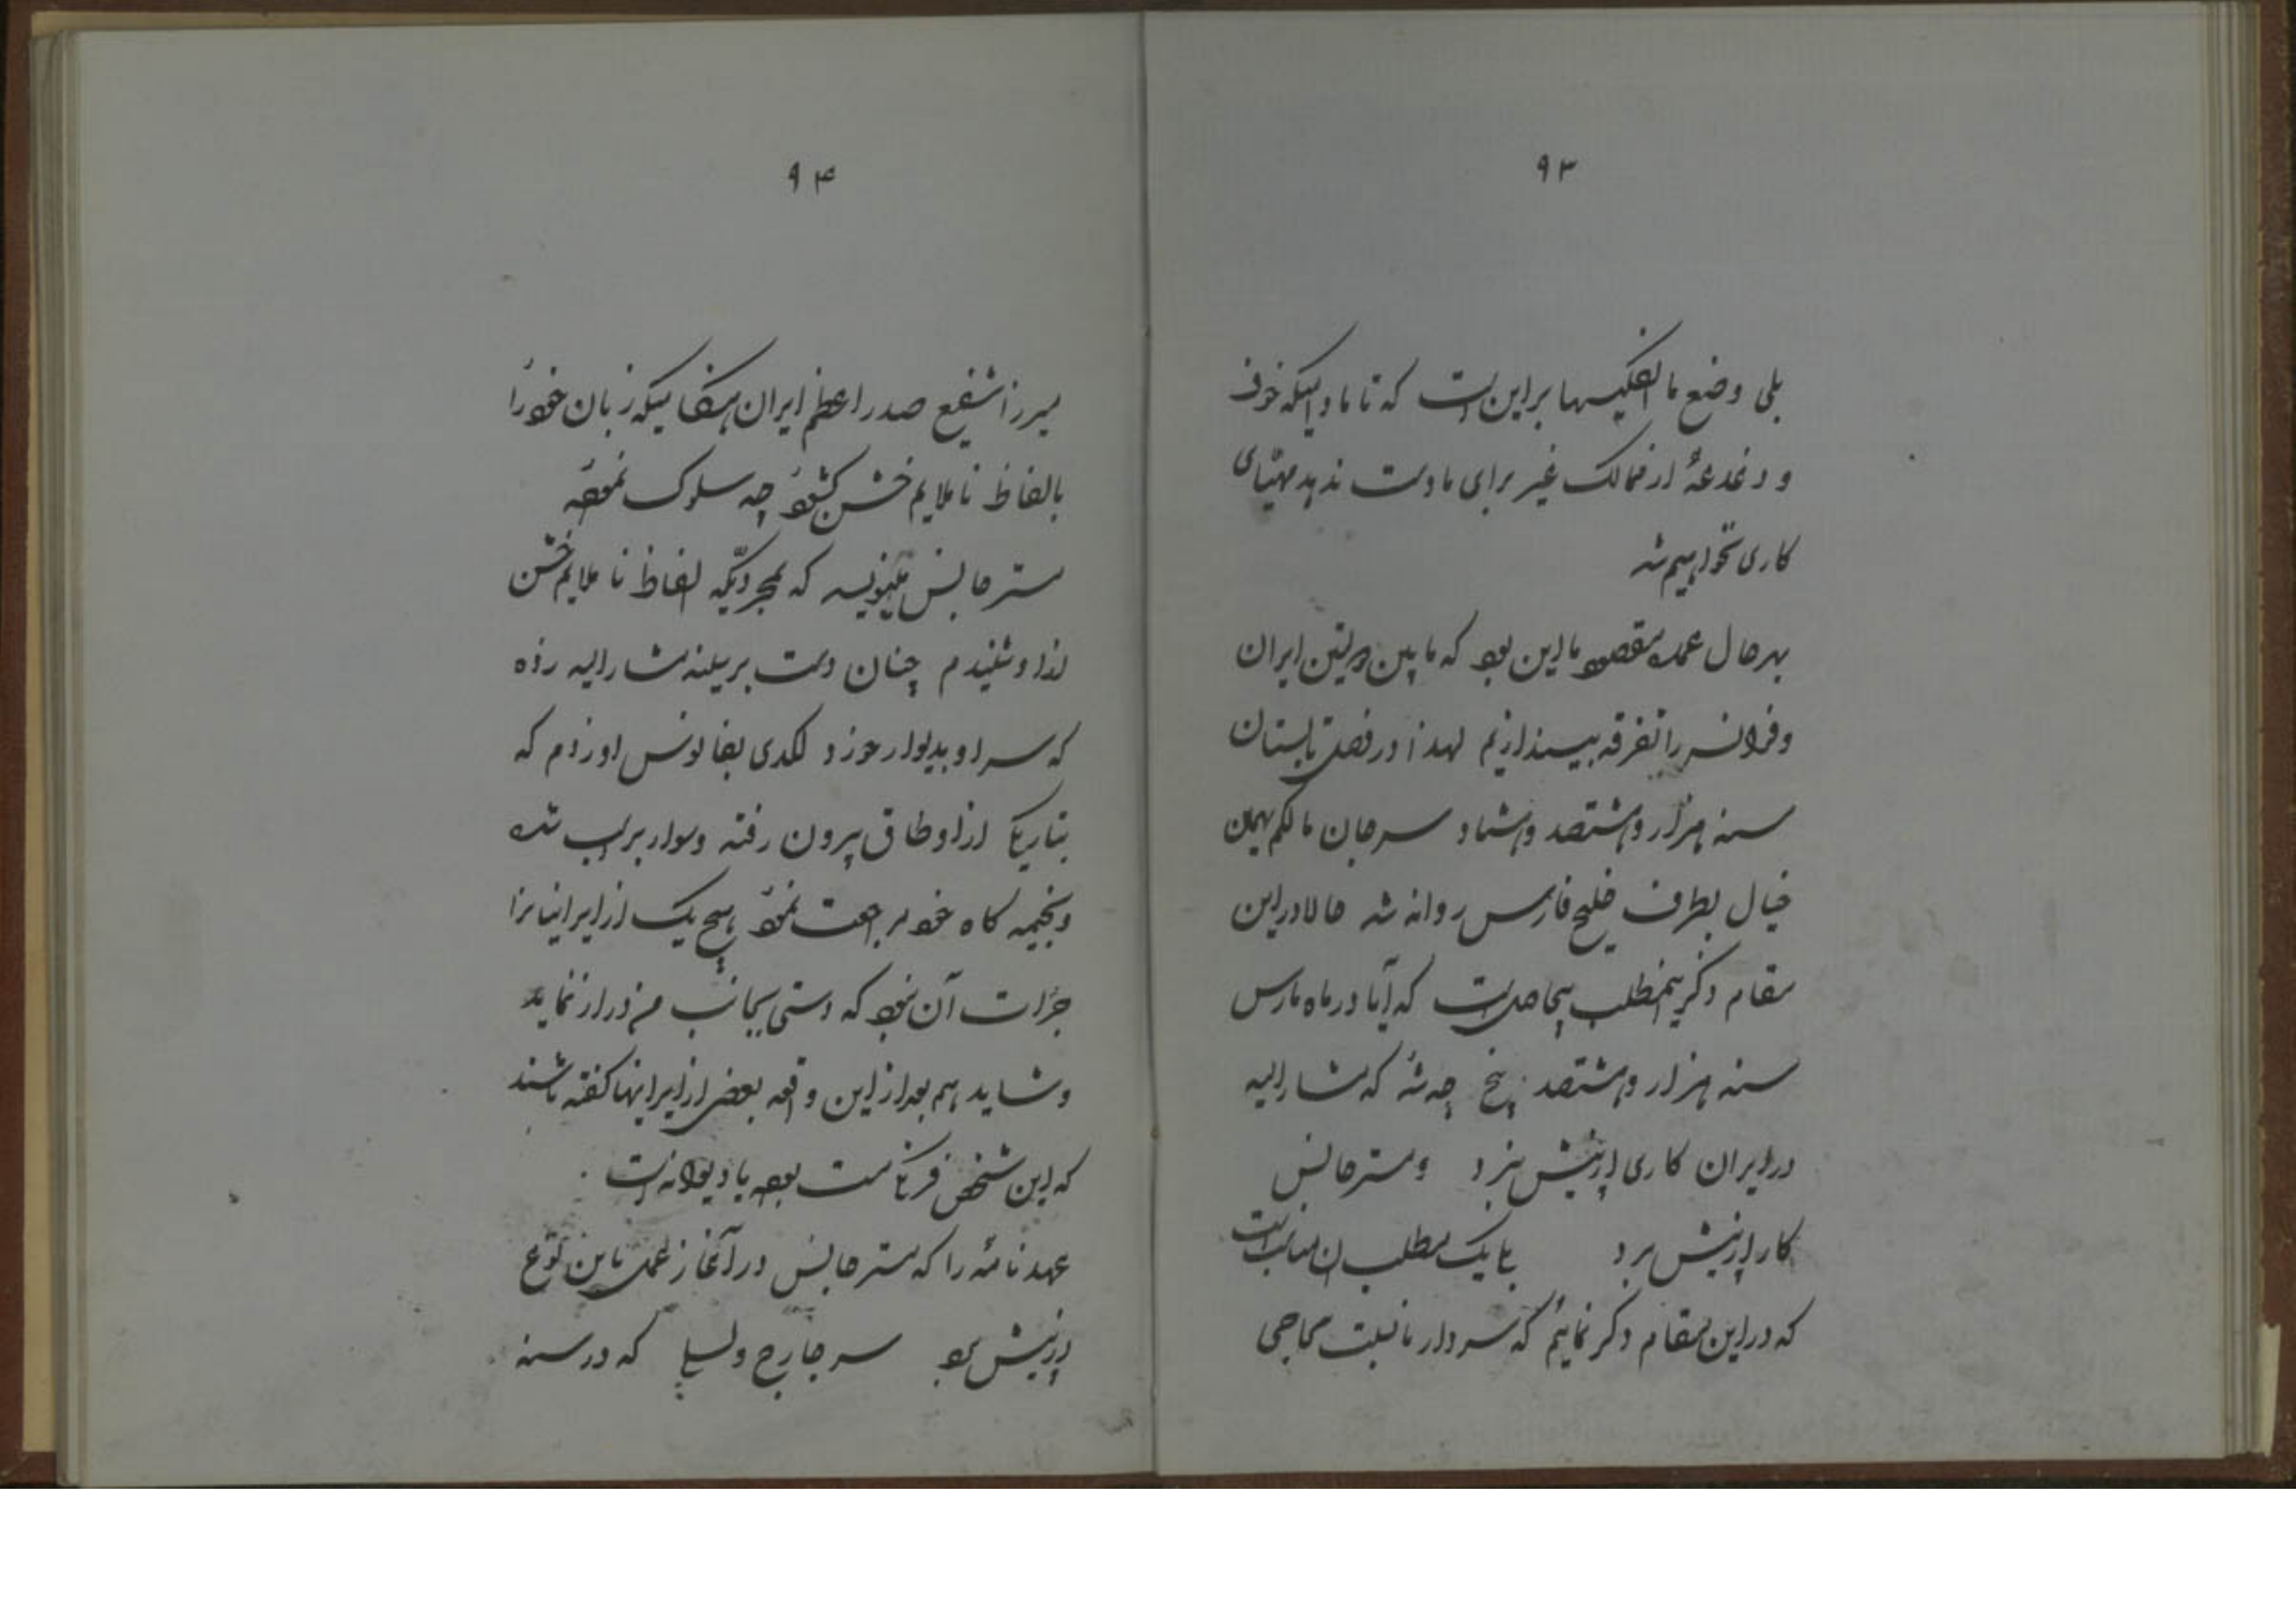 ۹۳
بلی وضع ما انگلیسها براین است که تا مادامیکه خوف
و دغدغهٔ از ممالک غیر برای ما دست ندهد مهیّای
کاری نخواهیم شد
بهرحال عمده مقصود ما این بود که مابین دولتین ایران
و فرانسه را تفرقه بیندازیم لهذا در فصل تابستان
سنه هزار و هشتصد و هشتاد سرجان مالکم بهمین
خیال بطرف خلیج فارس روانه شد حالا در این
مقام ذکر اینمطلب بیجاصل است که آیا در ماه مارس
سنه هزار و هشتصد پنج چه شد که مشارالیه
در ایران کاری از پیش نبرد و مستر جانس
کار از پیش برد یک مطلب مناسب است
که در این مقام ذکر نمائیم که سردار نسبت بحاجی
۹۴
میرزا شفیع صدر اعظم ایران هنگامیکه زبان خود را
بالفاظ ناملایم خشن گشود چه سلوک نمود
مستر جانس مینویسد که بمجردیکه الفاظ ناملایم خشن
از او شنیدم چنان دست بر سینه مشارالیه زده
که سر او بدیوار خورد لگدی بفانوس او زدم که
بتاریکی از اوطاق بیرون رفته و سوار بر اسب شده
و بخیمه گاه خود مراجعت نمود هیچ یک از ایرانیانرا
جرأت آن نبود که دستی بجانب من دراز نماید
و شاید هم بعد از این واقعه بعضی از ایرانیها گفته باشند
که این شخص فرنگی مست بوده یا دیوانه است
عهدنامه را که مستر جانس در آغاز عمل باین نوع
از پیش برد سر جارج ولسلی که در سنه